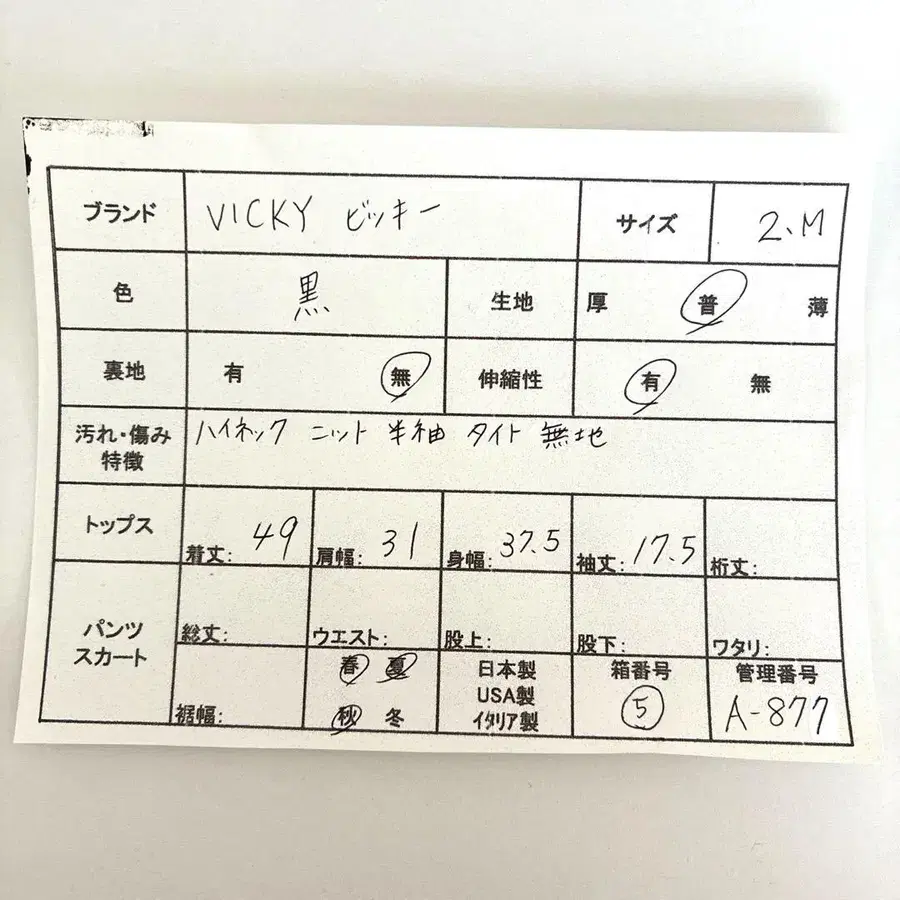 ブランド VICKY ビッキー サイズ 2、M
色 黒 生地 厚 普 薄
裏地 有 無 伸縮性 有 無
汚れ・傷み
特徴
ハイネック ニット 半袖 タイト 無地
トップス 着丈: 49 肩幅: 31 身幅: 37.5 袖丈: 17.5 裄丈:
パンツ
スカート
総丈: ウエスト: 股上: 股下: ワタリ:
裾幅:
春 夏
秋 冬
日本製
USA製
イタリア製
箱番号
5
管理番号
A-877